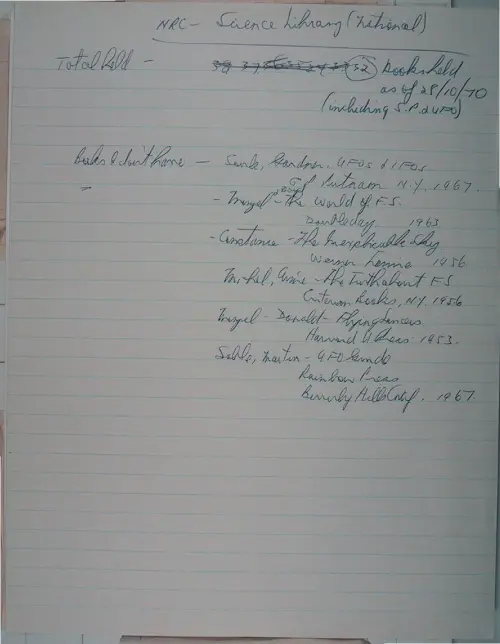 NRC - Science Library (National)
Total held - 32 Books held
as of 28/10/70
(including S.P. & UFO)
Books I don't have - Soule, Gardner. UFOs & IFOs
G.P. Putnam N.Y. 1967.
- Menzel & Boyd - The World of F.S.
Doubleday 1963
- Constance - The Inexplicable Sky
Werner Laurie 1956
Michel, Aime - The Truth about F S
Criterion Books, N.Y. 1956
Menzel - Donald - Flying Saucers
Harvard U Press. 1953.
Sable, Martin - UFO Guide
Rainbow Press
Beverly Hills Calif. 1967.